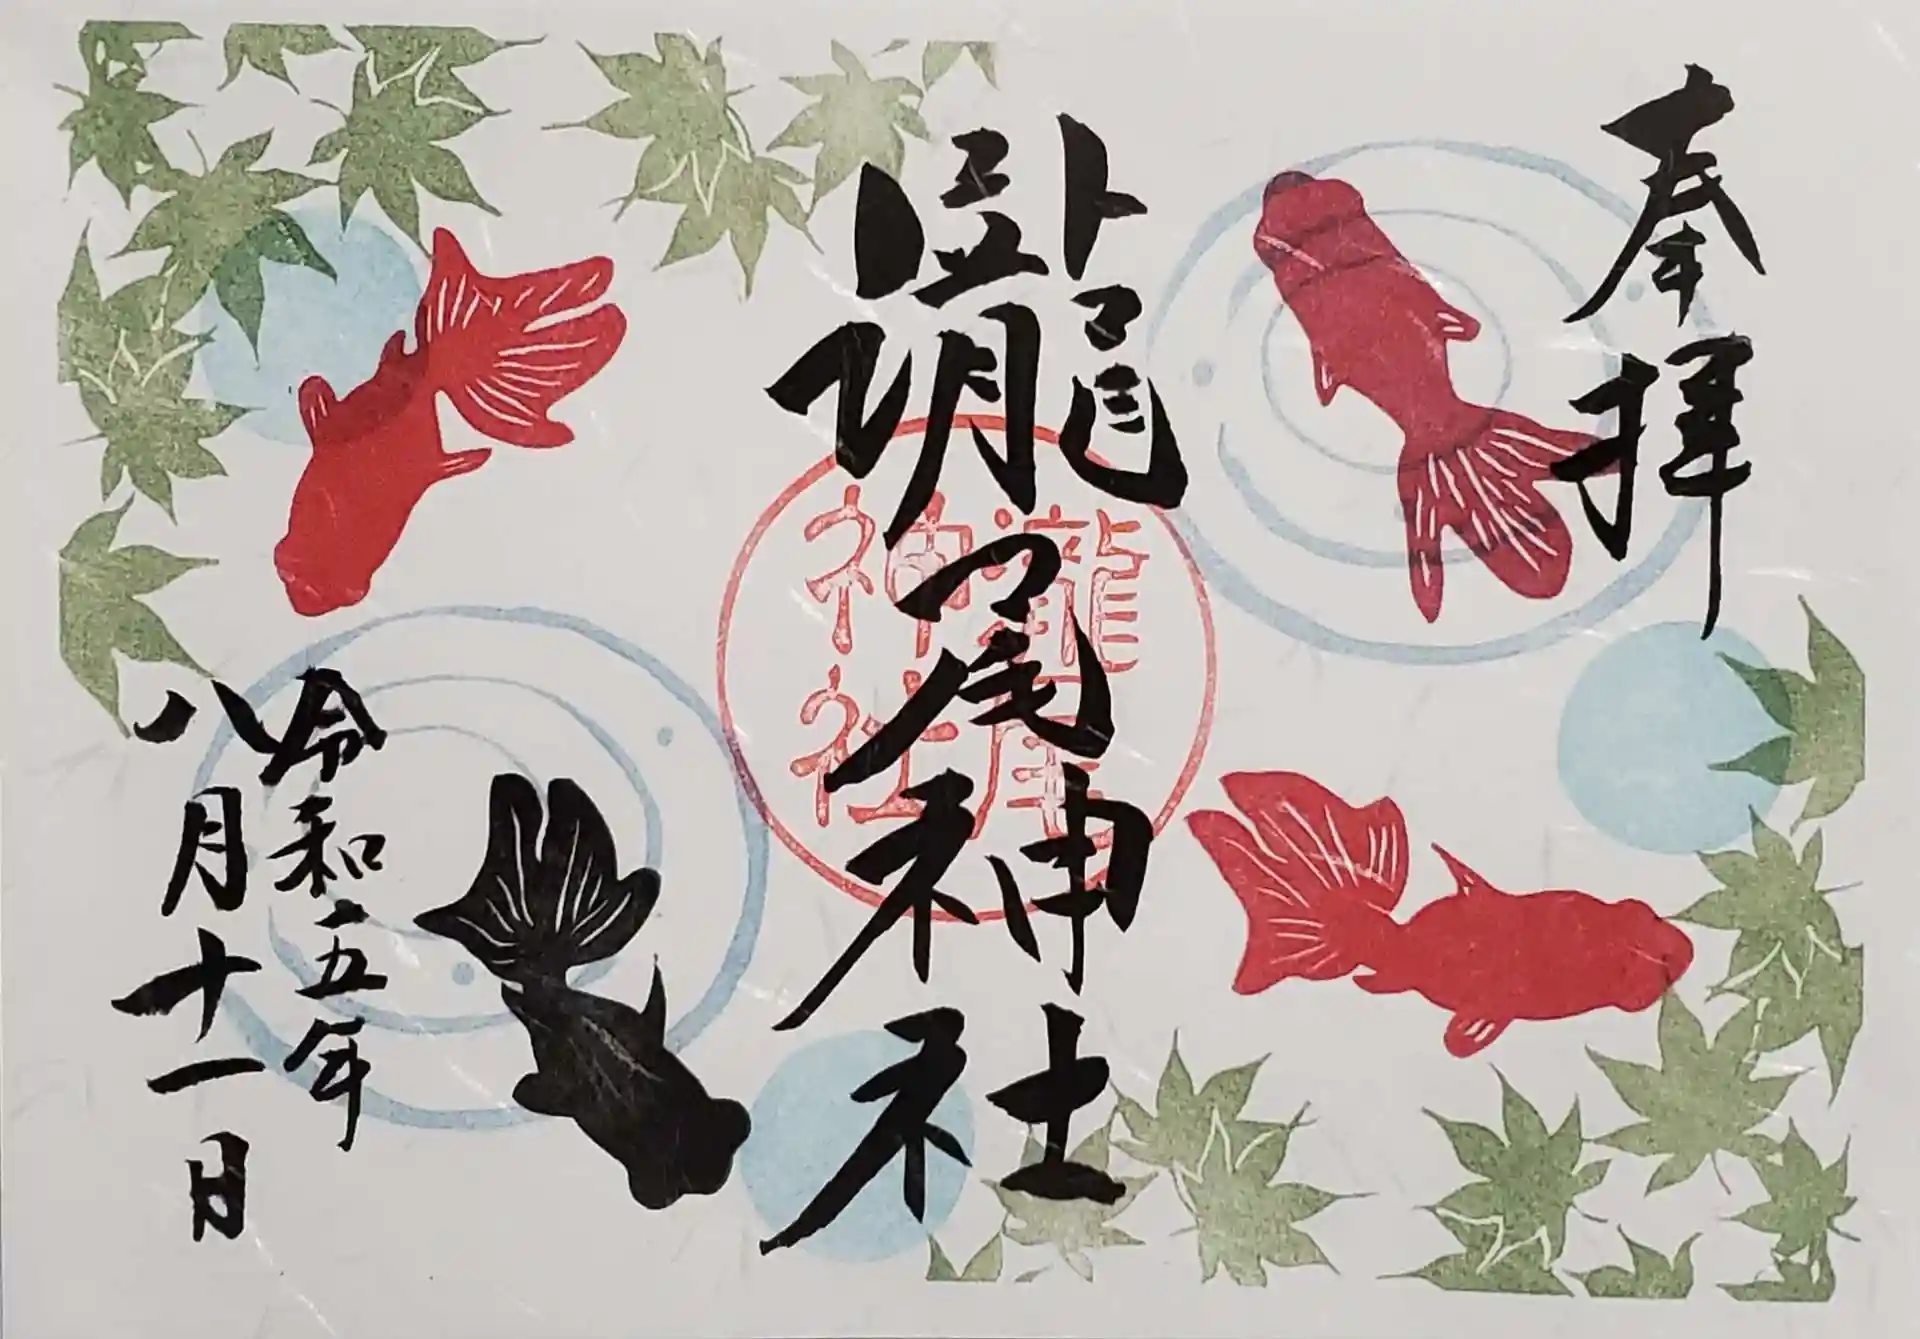 奉拝
龍尾神社
瀧尾神社
令和五年
八月十一日